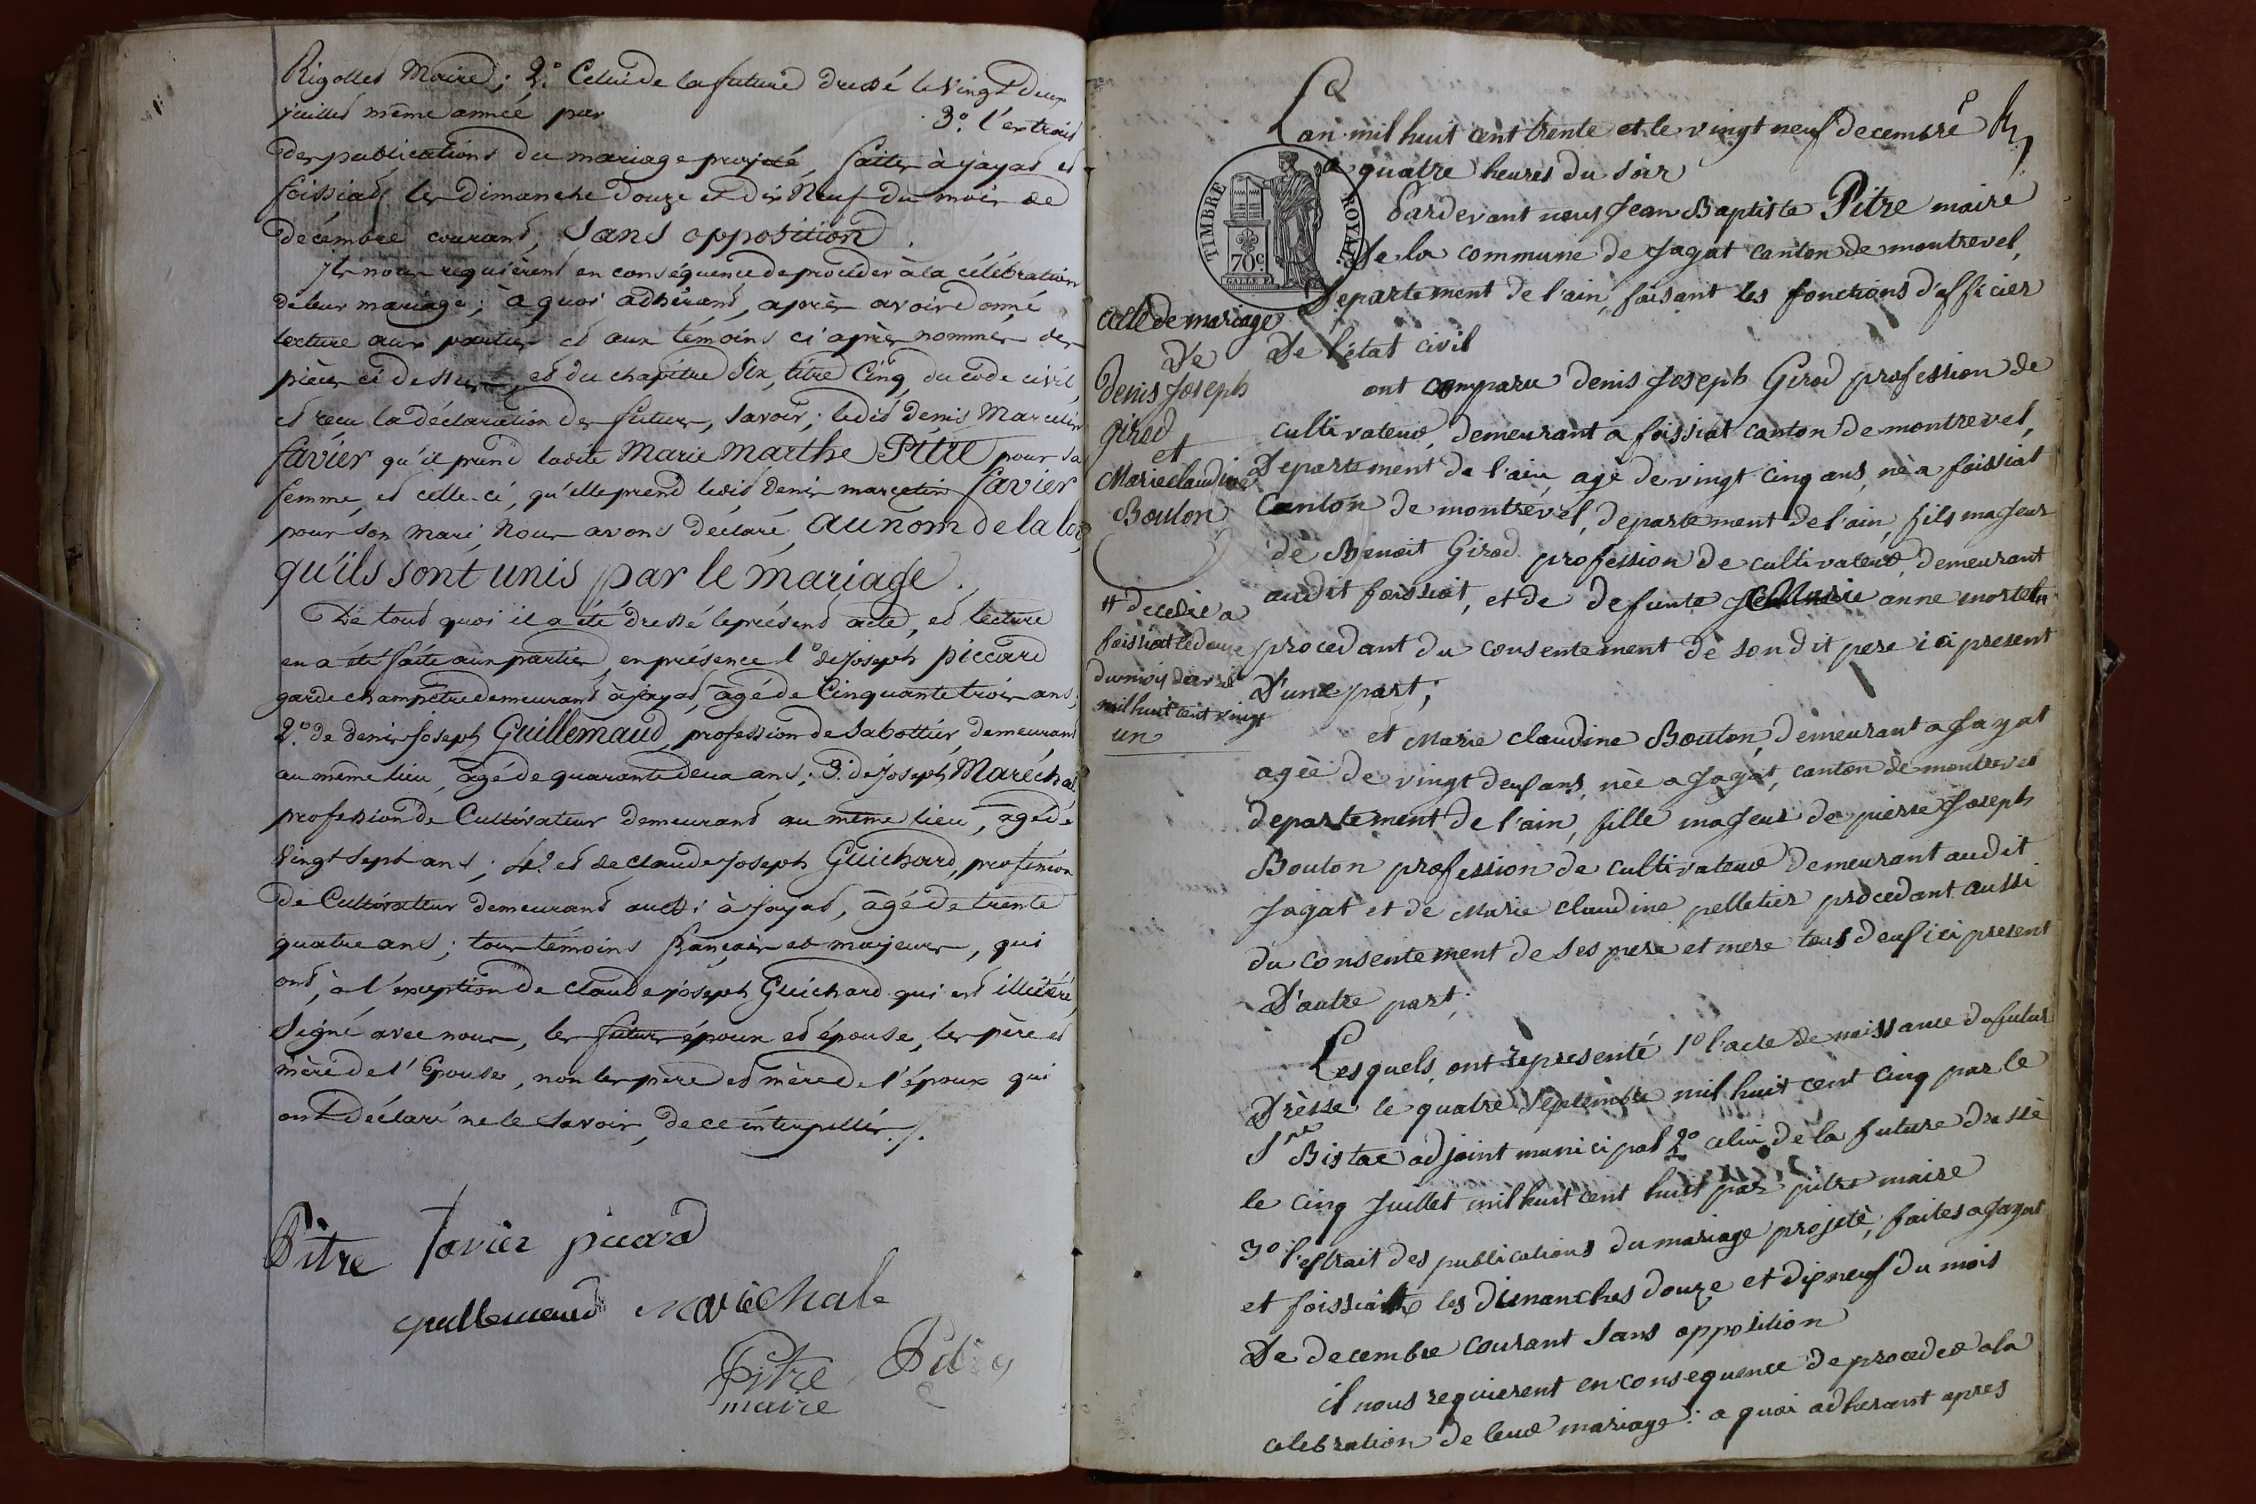 Rigollet Maire; 2.° Celui de la future dressé le Vingt Deux
juillet même année par 3.° l'extrait
des publications du mariage projeté, faites à jayat et
foissiat les Dimanche Douze et Dix Neuf du mois de
décembre courant, Sans opposition.
Ils nous requièrent en conséquence de procéder à la célébration
de leur mariage; à quoi adhérant, après avoir donné
lecture aux parties et aux témoins ci après nommés des
pièces ci dessus, et du chapitre Six, titre Cinq, du code civil,
et reçu la déclaration des futurs, Savoir; ledit Denis Marcelin
favier qu'il prend ladite Marie Marthe Pitre pour sa
femme, et celle-ci, qu'elle prend ledit Denis marcelin favier
pour son mari, Nous avons déclaré, au nom de la loi,
qu'ils sont unis par le mariage.
De tout quoi il a été dressé le présent acte, et lecture
en a été faite aux parties en présence 1.° de Joseph piccard
garde champêtre demeurant à jayat, âgé de Cinquante trois ans,
2.° de denis joseph Guillemaud, profession de Sabottier, demeurant
au même lieu, âgé de quarante deux ans; 3.° de Joseph Maréchal
profession de Cultivateur demeurant au même lieu, âgé de
Vingt Sept ans; 4.° et de claude joseph Guichard, profession
de Cultivateur demeurant aussi à jayat, âgé de trente
quatre ans; tous témoins français et majeurs, qui
ont, à l'exception de claude joseph Guichard qui est illitéré,
Signé avec nous, les futurs époux et épouse, les père et
mère de l'Epouse, non les père et mère de l'époux qui
ont Déclaré ne le Savoir, de ce interpellés./.
Pitre favier picard
guillemaud marechale
Pitre
maire
L'an mil huit cent trente et le vingt neuf decembre
a quatre heures du soir
TIMBRE ROYAL
70c.
Pardevant nous Jean Baptiste Pitre maire
de la commune de Jayat canton de montrevel,
Departement de l'ain, faisant les fonctions d'officier
De l'état civil
acte de mariage
De
denis Joseph
girod
et
Marie claudine
Bouton
ont comparu denis Joseph Girod profession de
cultivateur, demeurant a foissiat canton de montrevel,
Departement de l'ain, agé de vingt cinq ans, né a foissiat
Canton de montrevel, departement de l'ain, fils majeur
de Benoit Girod profession de cultivateur, demeurant
audit foissiat, et de defunte Marie anne mortel #
# decedée a
foissiat le douze
du mois de
mil huit cent vingt
un
procedant du consentement de son dit pere ici present
D'une part;
et Marie claudine Bouton, demeurant a Jayat
agée de vingt deux ans, née a Jayat, canton de montrevel
departement de l'ain, fille majeur de pierre Joseph
Bouton profession de cultivateur demeurant audit
Jayat et de Marie claudine pelletier procedant aussi
du consentement de ses pere et mere tous deux ici present
D'autre part;
Lesquels ont representé 1° l'acte de naissance du futur
Dressé le quatre Septembre mil huit cent cinq par le
Sr Bistac adjoint municipal 2° celui de la future dressé
le cinq Juillet mil huit cent huit par pitre maire
3° l'extrait des publications du mariage projeté, faites a Jayat
et foissiat les dimanches douze et dixneuf du mois
De decembre courant sans opposition
il nous requierent en consequence de proceder a la
celebration de leur mariage: a quoi adherant apres